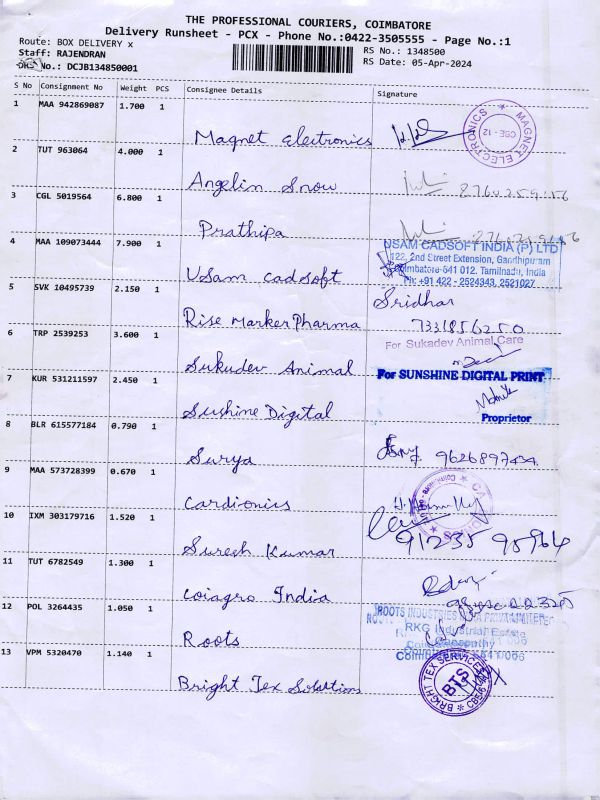 THE PROFESSIONAL COURIERS, COIMBATORE
Delivery Runsheet - PCX - Phone No.:0422-3505555 - Page No.:1
Route: BOX DELIVERY x
Staff: RAJENDRAN
RS No.: 1348500
DRS No.: DCJB134850001
RS Date: 05-Apr-2024
S No Consignment No Weight PCS Consignee Details Signature
1 MAA 942869087 1.700 1
Magnet Electronics
MAGNET ELECTRONICS * CBE - 12
2 TUT 963064 4.000 1
Angelin Snow
3 CGL 5019564 6.800 1
Prathipa
4 MAA 109073444 7.900 1
USam Cadsoft
USAM CADSOFT INDIA (P) LTD
122, 2nd Street Extension, Gandhipuram
Coimbatore-641 012. Tamilnadu, India
Ph: +91 422 - 2524343, 2521027
5 SVK 10495739 2.150 1
Rise Marker Pharma
Sridhar
7331856250
6 TRP 2539253 3.600 1
Sukudev Animal
For Sukadev Animal Care
7 KUR 531211597 2.450 1
Sushine Digital
For SUNSHINE DIGITAL PRINT
Proprietor
8 BLR 615577184 0.790 1
Surya
9 MAA 573728399 0.670 1
Cardionics
10 IXM 303179716 1.520 1
Suresh Kumar
91235 95964
11 TUT 6782549 1.300 1
Coiagro India
12 POL 3264435 1.050 1
Roots
ROOTS INDUSTRIES INDIA PRIVATE LIMITED
RKG Industrial Estate
13 VPM 5320470 1.140 1
Bright Tex Solutions
BRIGHT TEX SERVICES
BTS